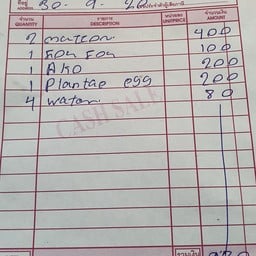 ที่อยู่ ADDRESS 30. 9. 20
จำนวน QUANTITY รายการ DESCRIPTION หน่วยละ UNIT PRICE จำนวนเงิน AMOUNT
2 mutton 400
1 Foy Foy 100
1 Ako 200
1 Plantae egg 200
4 water 80
CASH SALE
รวมเงิน